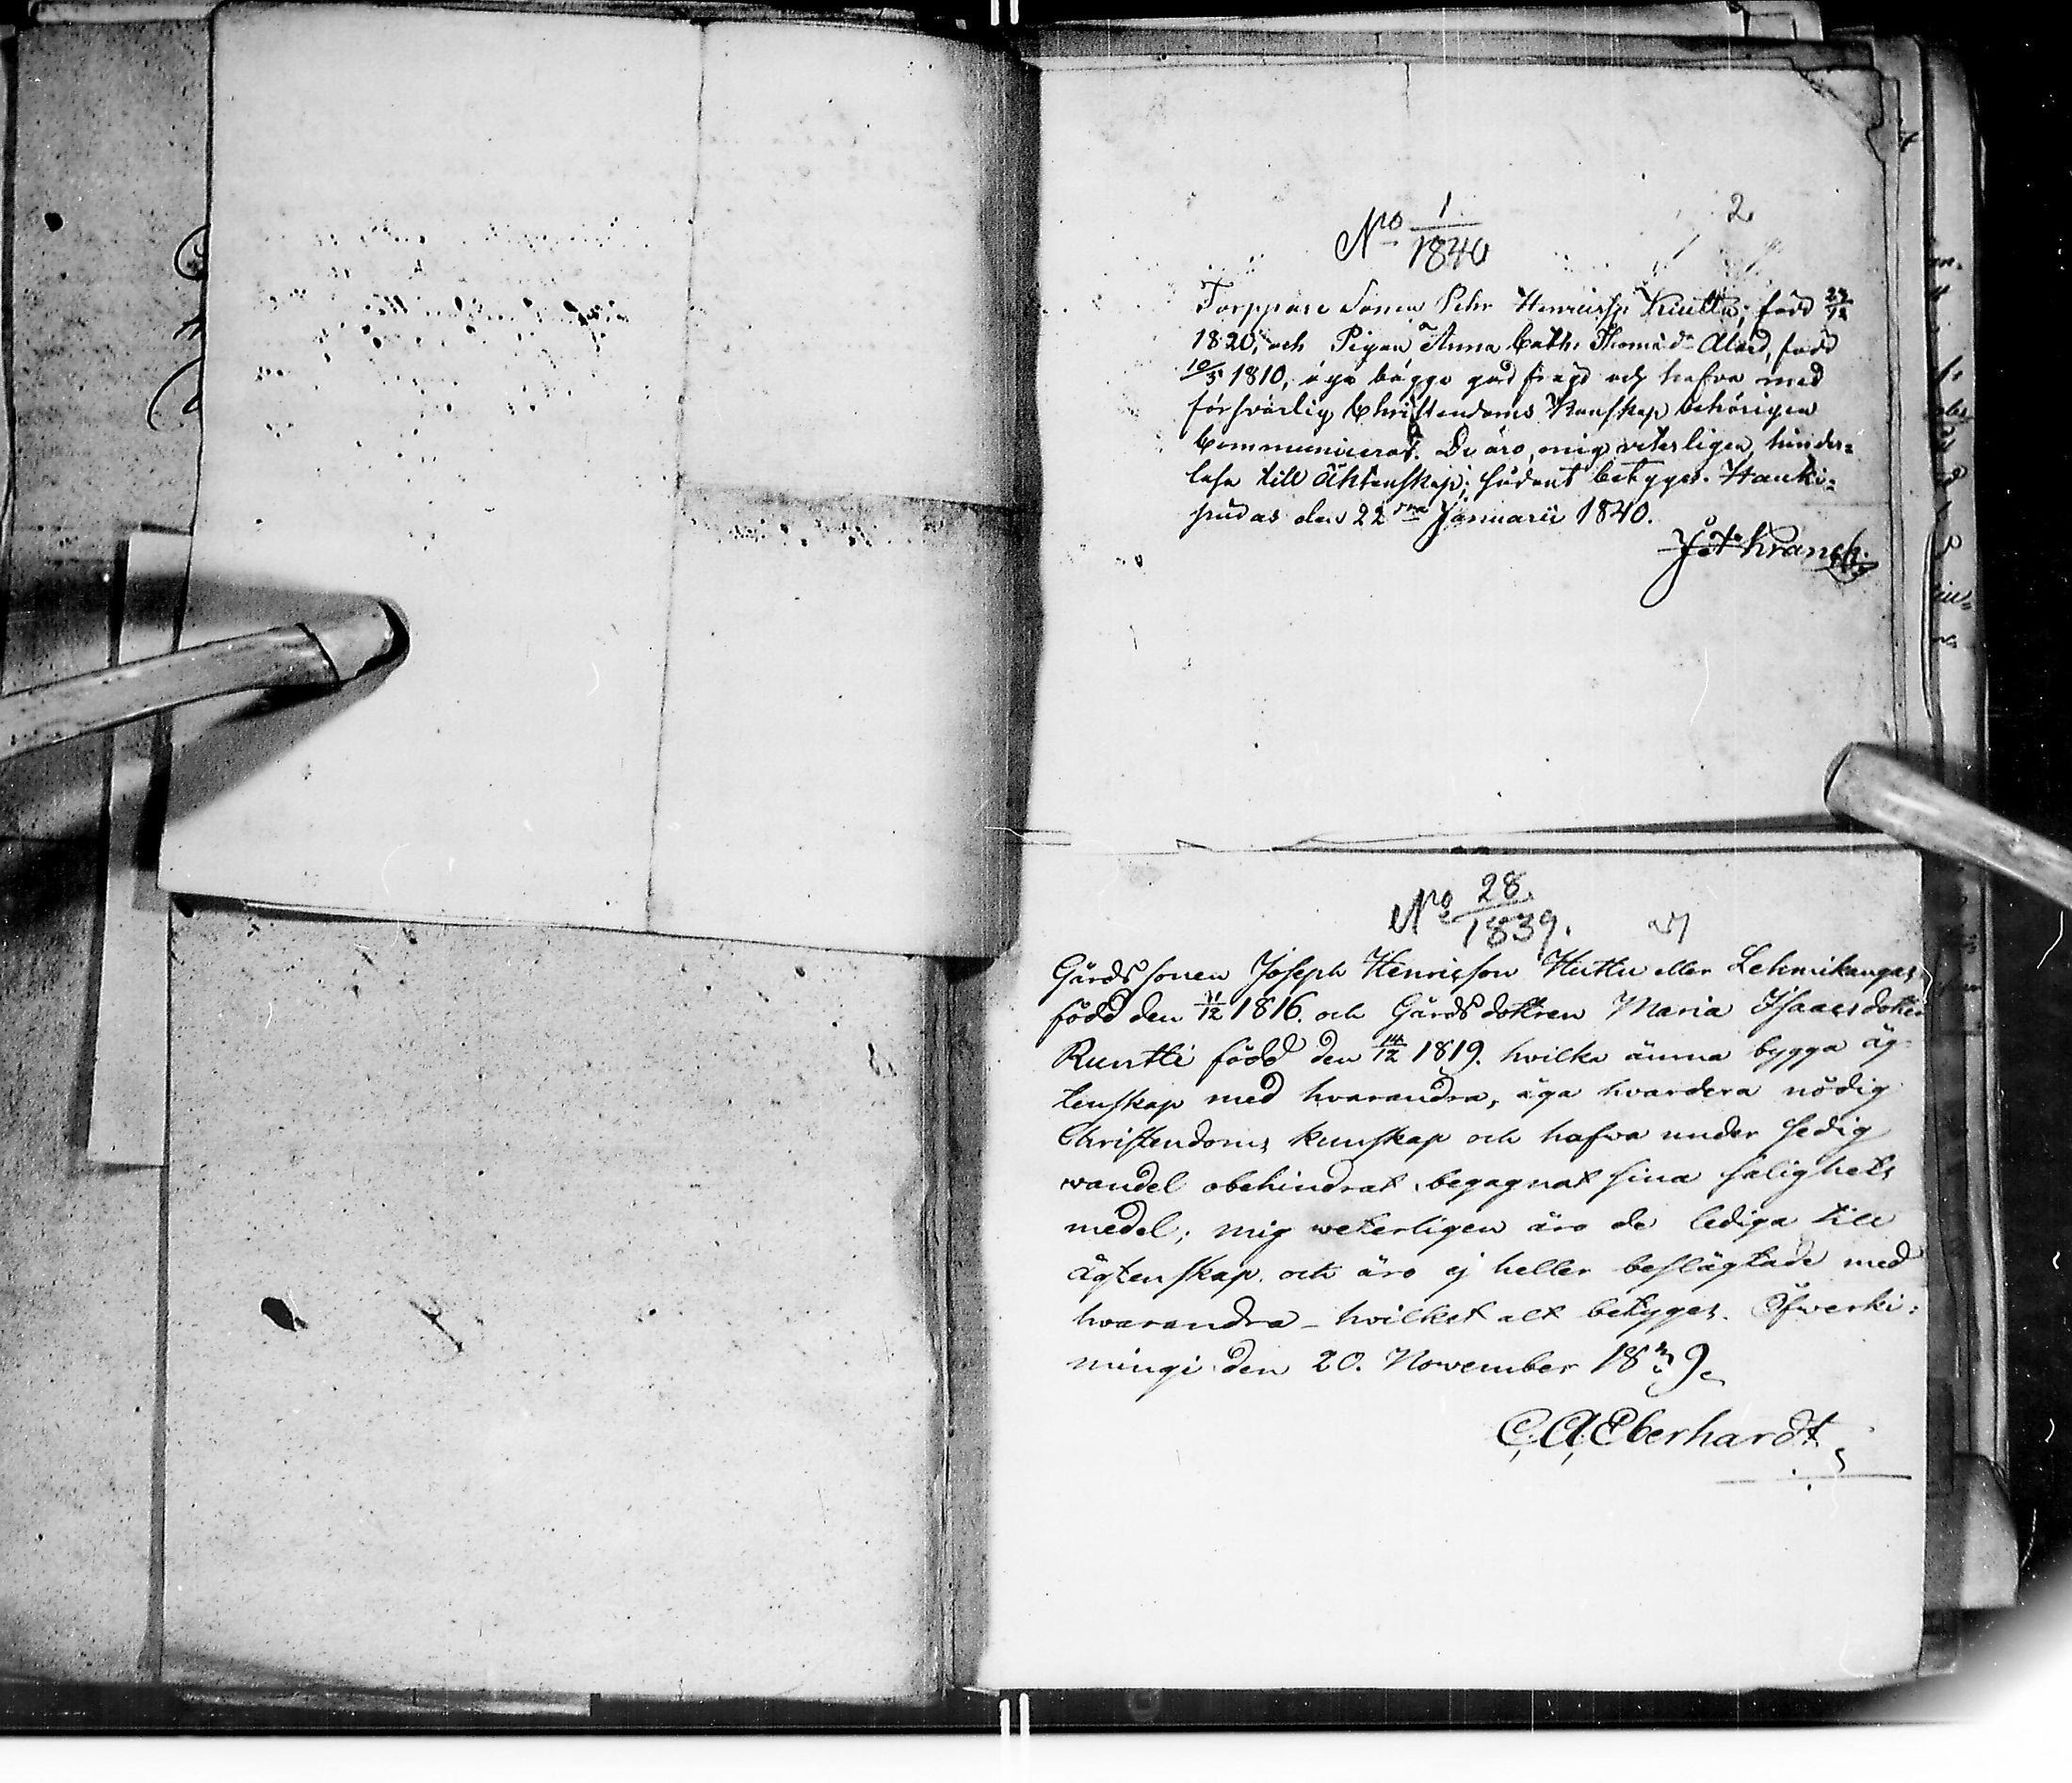 2
No 1/1840
Torppare Sonen Pehr Henricsson Kuitta, född 24/12
1820, och Pigan Anna Cath. Thomæ dr Alard, född
10/5 1810, äga bägge god frägd och hafva med
försvarlig Christendoms Kunskap behörigen
Communicerat. De äro, mig veterligen, hinder=
lösa till Äktenskap; sådant betygas. Hauki=
pudas den 22dra Januarii 1840.
J. A. Kranck.
No 28/1839.
Gårdssonen Joseph Henricson Huttu eller Lehmikangas,
född den 11/12 1816. och Gårdsdottren Maria Isaacsdotter
Runtti född den 14/12 1819. hvilka ämna bygga äg=
tenskap med hvarandra, äga hvardera nödig
Christendoms kunskap och hafwa under sedig
wandel obehindrat begagnat sina salighets
medel; mig weterligen äro de lediga till
ägtenskap, och äro ej heller beslägtade med
hvarandra – hvilket alt betygas. Öfwerki=
mingi den 20. November 1839.
C. A. Eberhardt